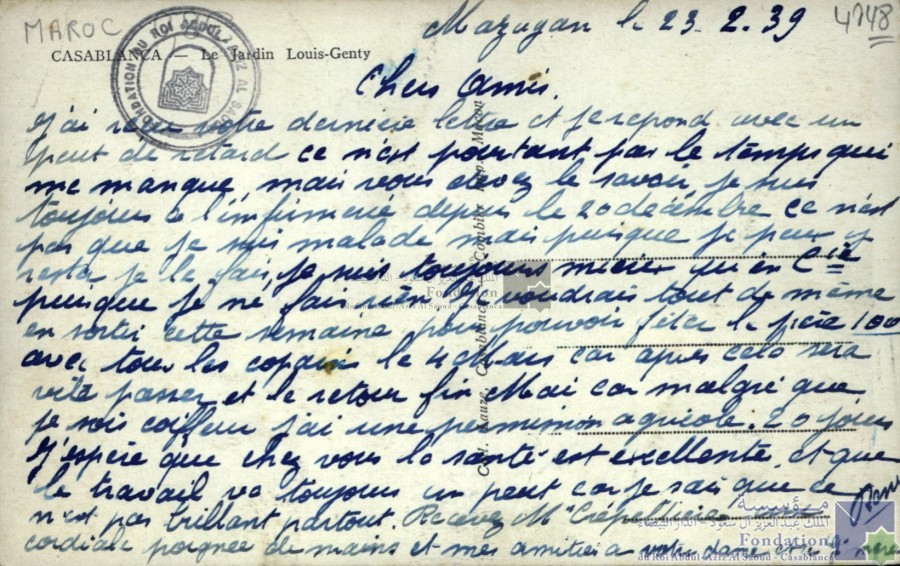 MAROC
Mazagan le 23.2.39
4748
CASABLANCA — Le Jardin Louis-Genty
FONDATION DU ROI ABDUL AZIZ AL SAOUD
Chers Amis.
J'ai reçu votre dernière lettre et je repond avec un
peut de retard ce n'est pourtant pas le temps qui
me manque, mais vous devez le savoir, je suis
toujours a l'infirmerie depuis le 20 decembre ce n'est
pas que je suis malade mais puisque je peux y
reste je le fais, je suis toujours mieux qu'en Cie
puisque je ne fais rien. Je voudrais tout de même
en sortir cette semaine pour pouvoir fêter le père 100
avec tous les copains le 4 Mars car apres cela sera
vite passer et le retour fin Mai car malgré que
je sois coiffeur j'ai une permission agricole. 20 jours
J'espère que chez vous la santé est excellente, et que
le travail va toujours un peut car je sais que ce
n'est pas brillant partout. Recevez Mr
cordiale poignée de mains et mes amitiés a votre dame et
مؤسسة
الملك عبد العزيز آل سعود - الدار البيضاء
Fondation
du Roi Abdul-Aziz Al Saoud - Casablanca